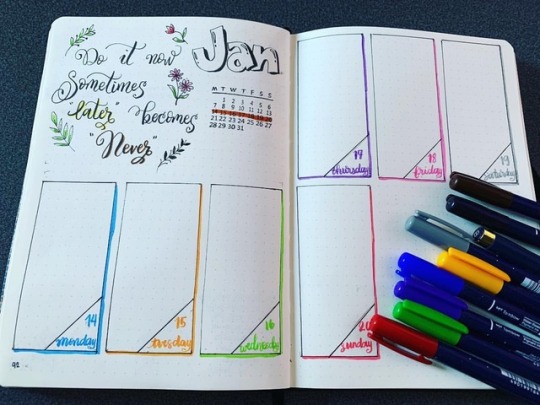 Do it now
Sometimes
"later" becomes
"Never"
Jan
M T W T F S S
1 2 3 4 5 6
7 8 9 10 11 12 13
14 15 16 17 18 19 20
21 22 23 24 25 26 27
28 29 30 31
14
monday
15
tuesday
16
wednesday
17
thursday
18
friday
19
saturday
20
sunday